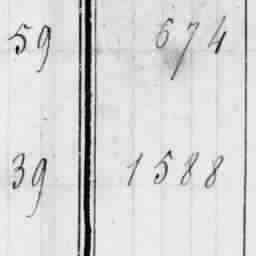 59 674
39 1588